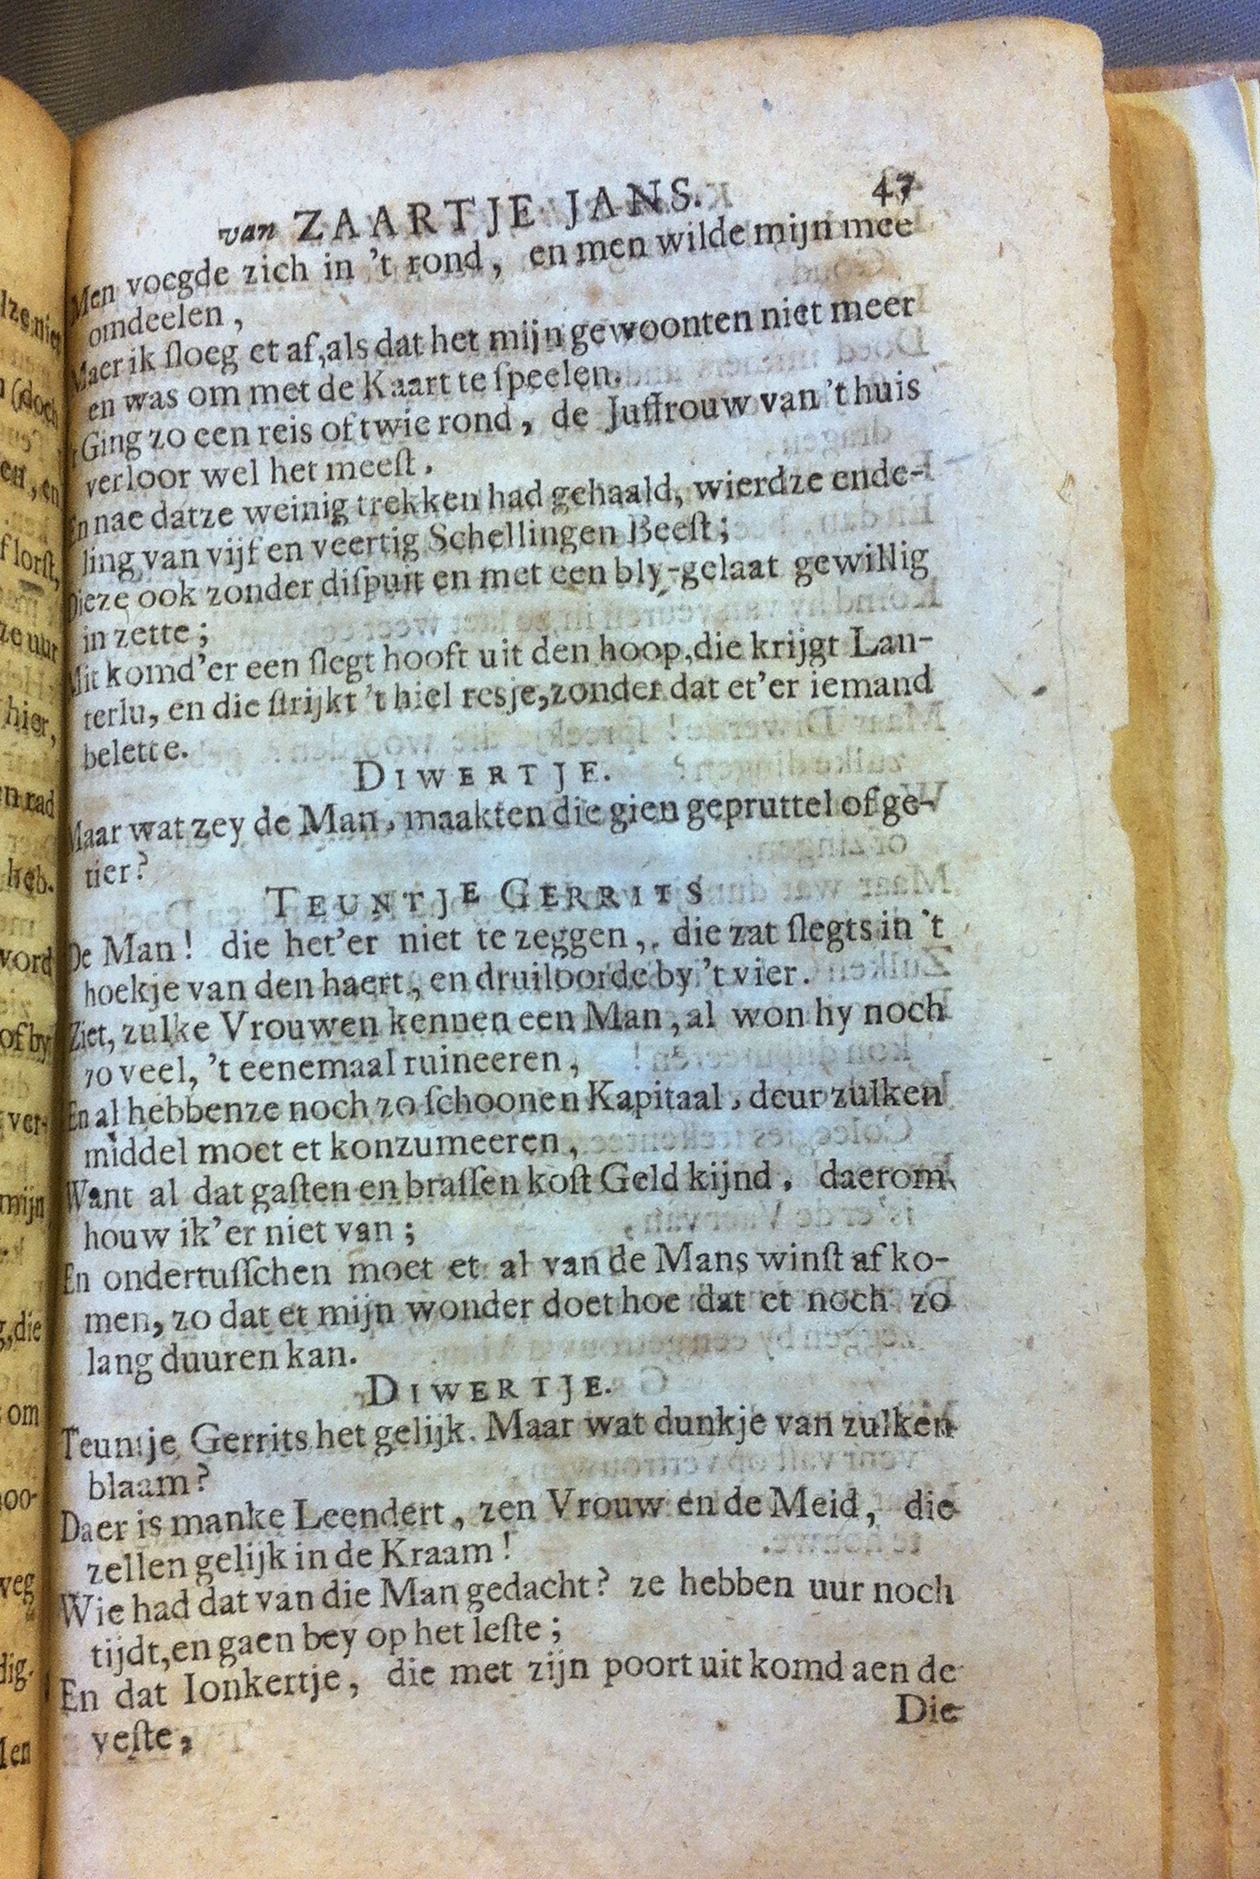 van ZAARTJE JANS. 47
Men voegde zich in 't rond, en men wilde mijn mee
omdeelen,
Maer ik sloeg et af, als dat het mijn gewoonten niet meer
en was om met de Kaart te speelen.
't Ging zo een reis of twie rond, de Juffrouw van 't huis
verloor wel het meest.
En nae datze weinig trekken had gehaald, wierdze ende-
ling van vijf en veertig Schellingen Beest;
Dieze ook zonder disputt en met een bly-gelaat gewillig
in zette;
Mit komd'er een slegt hooft uit den hoop, die krijgt Lan-
terlu, en die strijkt 't hiel resje, zonder dat et'er iemand
belette.
DIWERTJE.
Maar wat zey de Man, maakten die gien gepruttel of ge-
tier?
TEUNTJE GERRITS
De Man! die het'er niet te zeggen, die zat slegts in 't
hoekje van den haert, en druiloorde by 't vier.
Ziet, zulke Vrouwen kennen een Man, al won hy noch
zo veel, 't eenemaal ruineeren,
En al hebbenze noch zo schoonen Kapitaal, deur zulken
middel moet et konzumeeren,
Want al dat gasten en brassen kost Geld kijnd, daerom
houw ik'er niet van;
En ondertusschen moet et al van de Mans winst af ko-
men, zo dat et mijn wonder doet hoe dat et noch zo
lang duuren kan.
DIWERTJE.
Teuntje Gerrits het gelijk. Maar wat dunkje van zulken
blaam?
Daer is manke Leendert, zen Vrouw en de Meid, die
zellen gelijk in de Kraam!
Wie had dat van die Man gedacht? ze hebben uur noch
tijdt, en gaen bey op het leste;
En dat Ionkertje, die met zijn poort uit komd aen de
veste,
Die